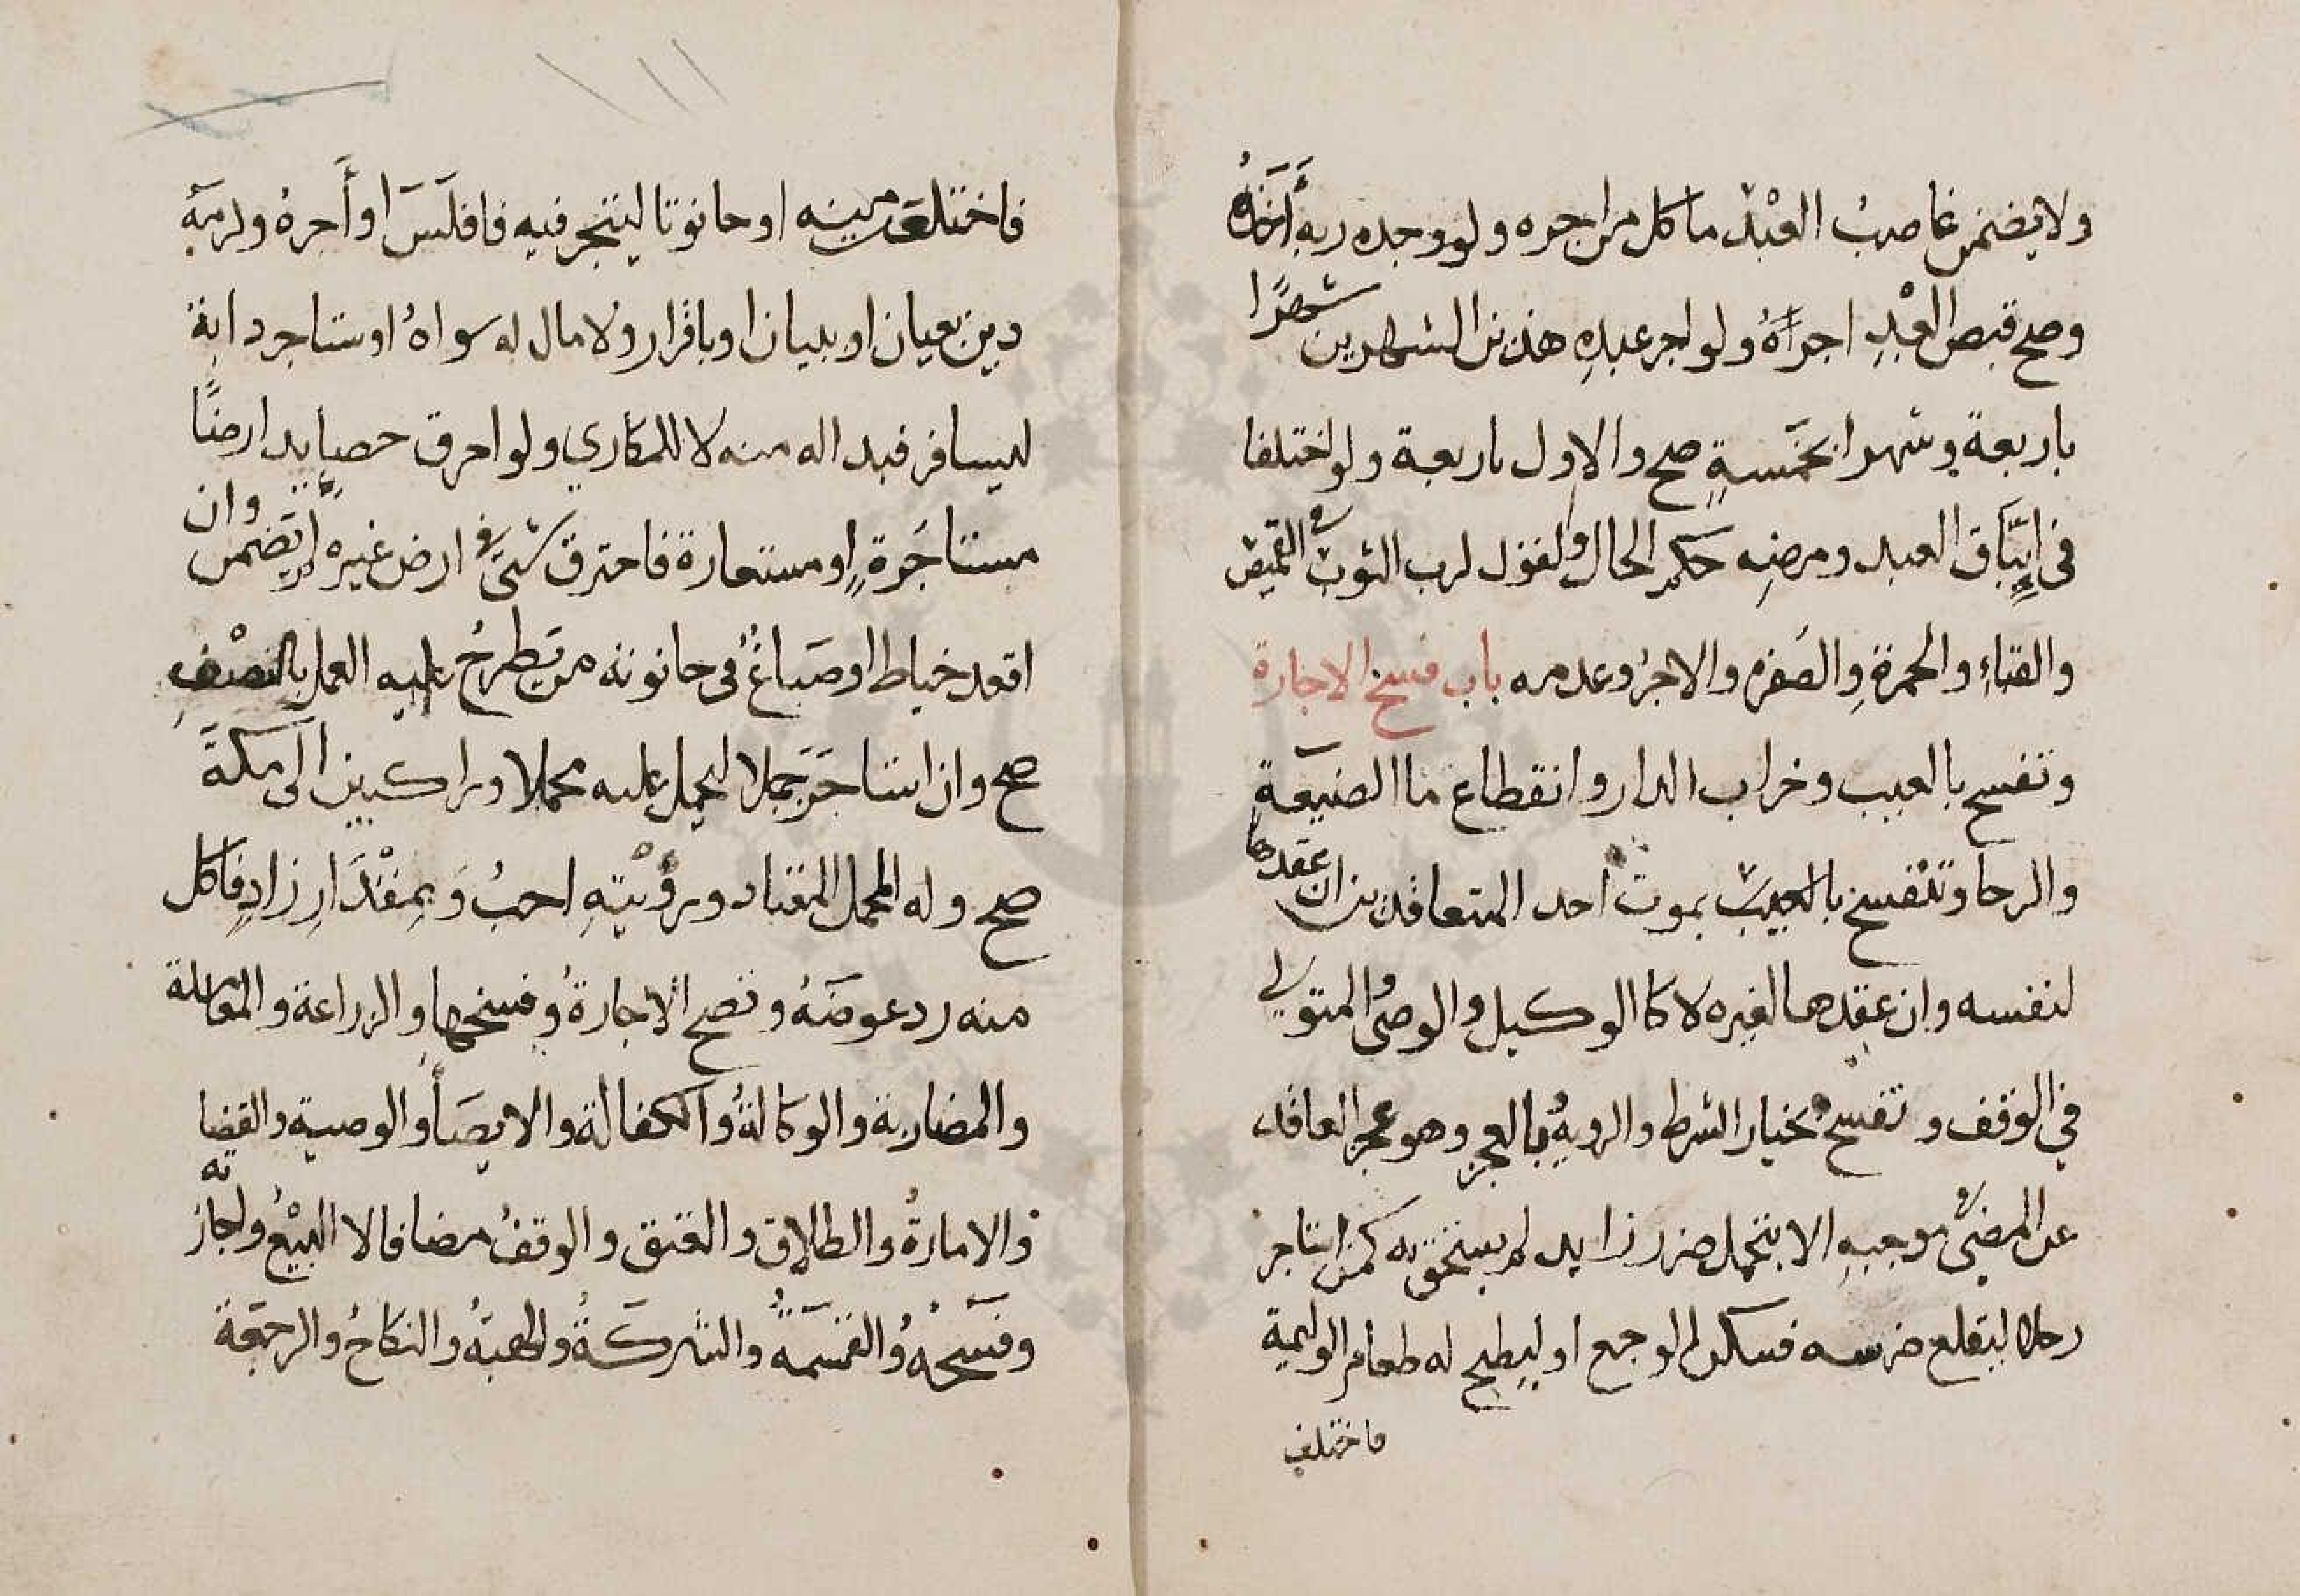 ولا يضمن غاصب العبد ما اكل من اجره ولو وجده ربه أخذه
وصح قبض العبد اجره ولو اجر عبده هذين الشهرين شهرا
باربعة وشهرا بخمسة صح والاول باربعة ولو اختلفا
في اباق العبد ومرضه حكم الحال والقول لرب الثوب في القميص
والقباء والحمرة والصفرة والاجر وعدمه باب فسخ الاجارة
وتفسخ بالعيب وخراب الدار وانقطاع ماا الضيعة
والرحا وتنفسخ بالعيب بموت احد المتعاقدين ان عقدها
لنفسه وان عقدها لغيره لا كالوكيل والوصي والمتولي
في الوقف وتفسخ بخيار الشرط والروية بالعجز وهو عجز العاقد
عن المضي في موجبه الا بتحمل ضرر زايد لم يستحق به كمن استاجر
رجلا ليقلع ضرسه فسكن الوجع او ليطبخ له طعام الوليمة
فاختلف
فاختلعت مينه او حانوتا ليتجر فيه فافلس او أجره ولزمه
دين بعيان او ببيان او باقرار ولا مال له سواه او ستاجر دابة
ليسافر فبدا له منه لا للمكاري ولو احرق حصايد ارضا
مستاجرة او مستعارة فاحترق شئ في ارض غيره لم يضمن وان
اقعد خياط او صباغ في حانوته من يطرح عليه العمل بالنصف
صح وان استاجر جملا ليحمل عليه محملا وراكبين الى مكة
صح وله المحمل المعتاد ورؤيته احب وبمقدار زاد فاكل
منه رد عوضه وتصح الاجارة وفسخها والزراعة والمعاملة
والمضاربة والوكالة والكفالة والايصا والوصية والقضا
والامارة والطلاق والعتق والوقف مضافا لا البيع واجازته
وفسخه والقسمة والشركة والهبة والنكاح والرجعة